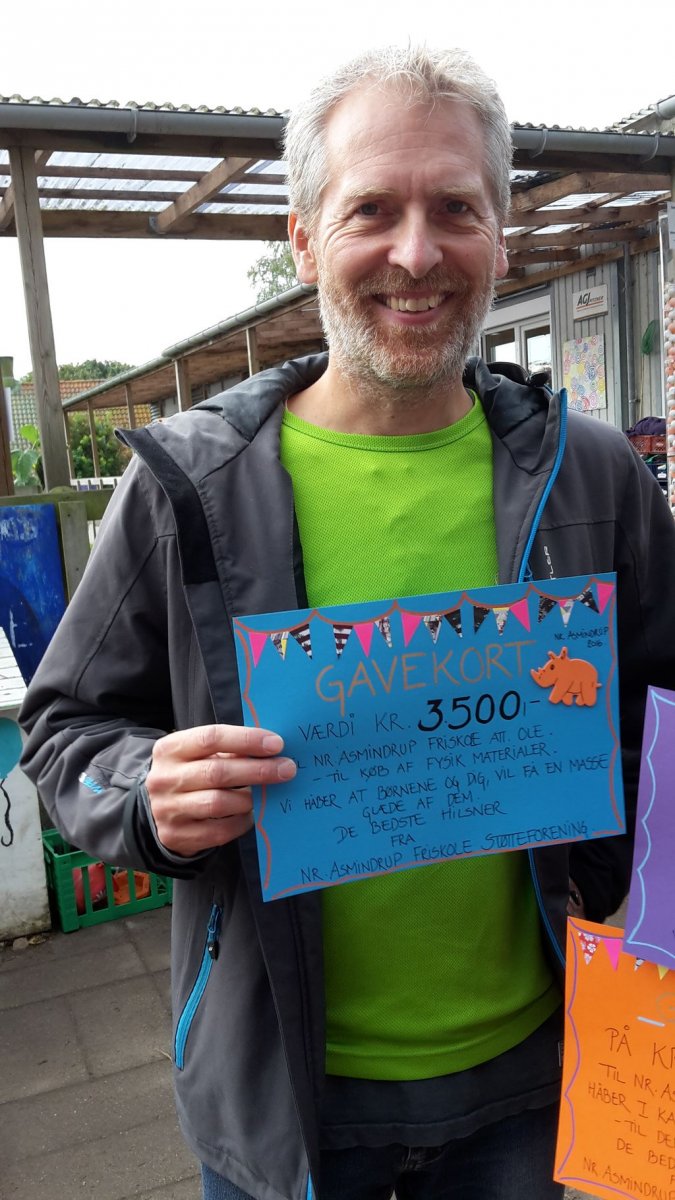 AGJ
NR. ASMINDRUP
2016
GAVEKORT
VÆRDI KR. 3.500,-
NR. ASMINDRUP FRISKOE ATT. OLE.
- TIL KØB AF FYSIK MATERIALER.
VI HÅBER AT BØRNENE OG DIG, VIL FÅ EN MASSE
GLÆDE AF DEM.
DE BEDSTE HILSNER
FRA
NR. ASMINDRUP FRISKOLE STØTTEFORENING
PÅ KR
TIL NR. AS
HÅBER I KA
- TIL DE
DE BED
NR. ASMINDRUP